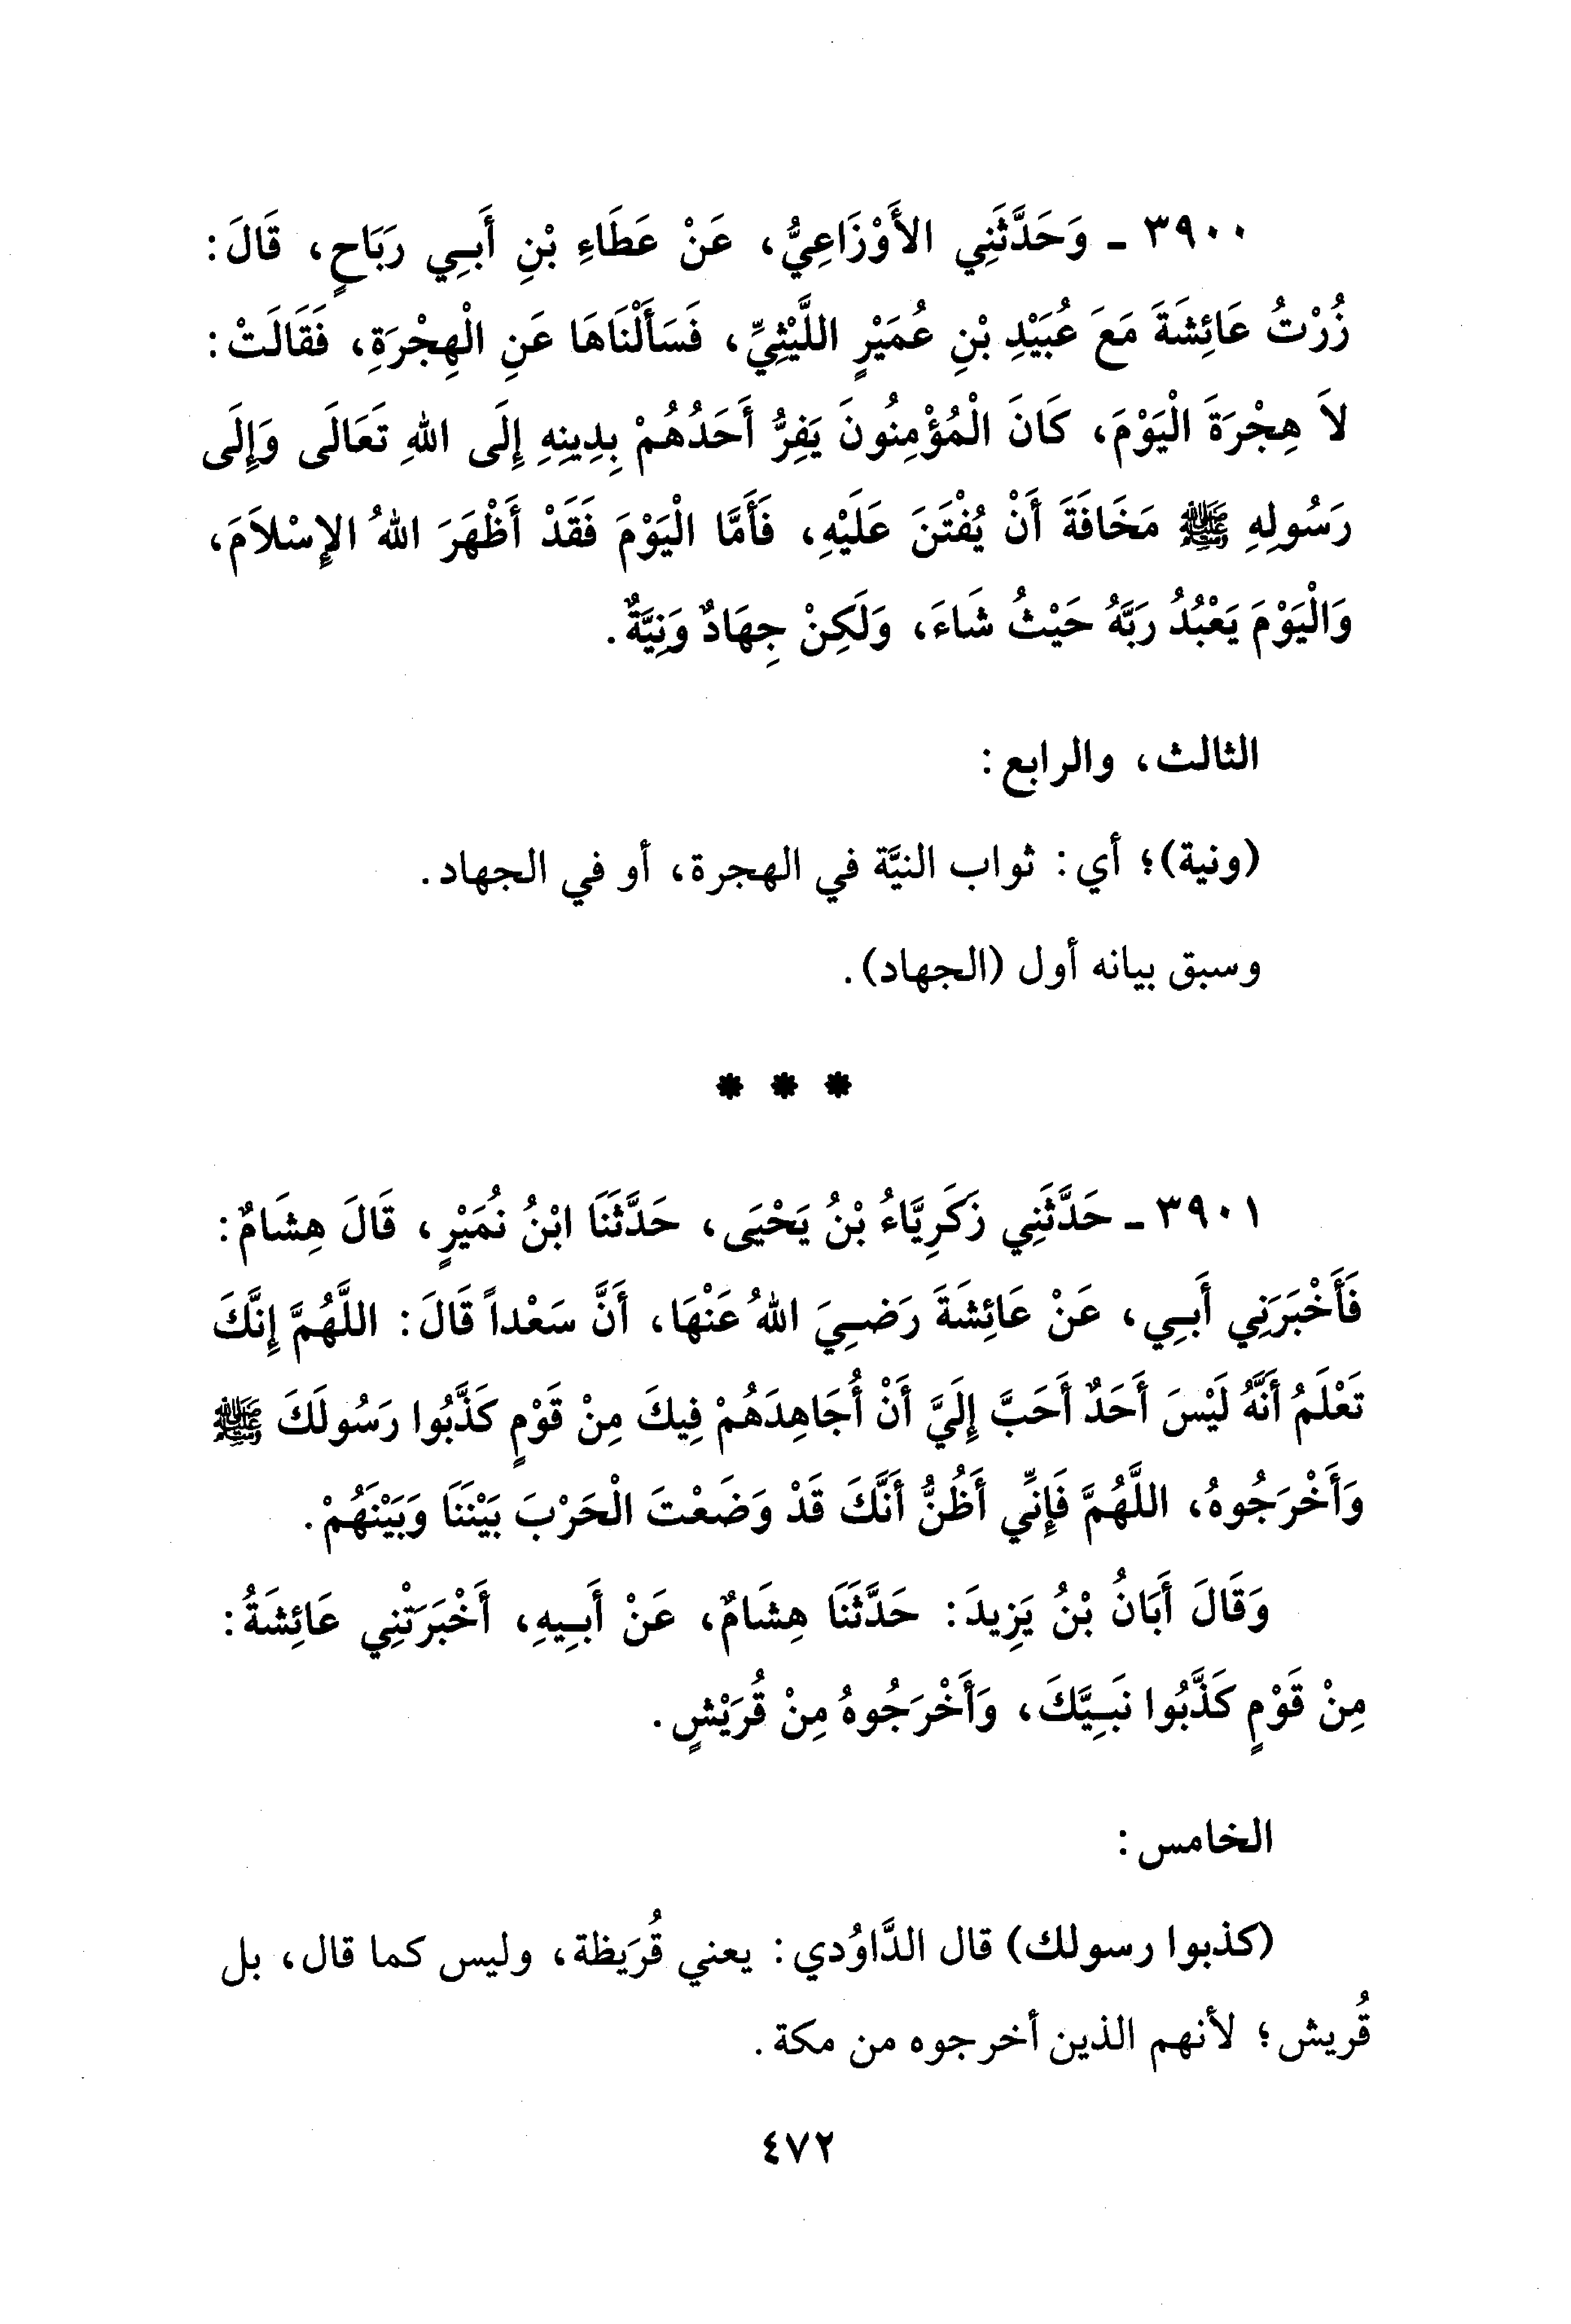 ٣٩٠٠ ـ وَحَدَّثَنِي الأَوْزَاعِيُّ، عَنْ عَطَاءِ بْنِ أَبِي رَبَاحٍ، قَالَ:
زُرْتُ عَائِشَةَ مَعَ عُبَيْدِ بْنِ عُمَيْرٍ اللَّيْثِيِّ، فَسَأَلْنَاهَا عَنِ الْهِجْرَةِ، فَقَالَتْ:
لاَ هِجْرَةَ الْيَوْمَ، كَانَ الْمُؤْمِنُونَ يَفِرُّ أَحَدُهُمْ بِدِينِهِ إِلَى اللهِ تَعَالَى وَإِلَى
رَسُولِهِ ﷺ مَخَافَةَ أَنْ يُفْتَنَ عَلَيْهِ، فَأَمَّا الْيَوْمَ فَقَدْ أَظْهَرَ اللهُ الإِسْلاَمَ،
وَالْيَوْمَ يَعْبُدُ رَبَّهُ حَيْثُ شَاءَ، وَلَكِنْ جِهَادٌ وَنِيَّةٌ.
الثالث، والرابع:
(ونية)؛ أي: ثواب النيَّة في الهجرة، أو في الجهاد.
وسبق بيانه أول (الجهاد).
* * *
٣٩٠١ ـ حَدَّثَنِي زَكَرِيَّاءُ بْنُ يَحْيَى، حَدَّثَنَا ابْنُ نُمَيْرٍ، قَالَ هِشَامٌ:
فَأَخْبَرَنِي أَبِي، عَنْ عَائِشَةَ رَضِيَ اللهُ عَنْهَا، أَنَّ سَعْداً قَالَ: اللَّهُمَّ إِنَّكَ
تَعْلَمُ أَنَّهُ لَيْسَ أَحَدٌ أَحَبَّ إِلَيَّ أَنْ أُجَاهِدَهُمْ فِيكَ مِنْ قَوْمٍ كَذَّبُوا رَسُولَكَ ﷺ
وَأَخْرَجُوهُ، اللَّهُمَّ فَإِنِّي أَظُنُّ أَنَّكَ قَدْ وَضَعْتَ الْحَرْبَ بَيْنَنَا وَبَيْنَهُمْ.
وَقَالَ أَبَانُ بْنُ يَزِيدَ: حَدَّثَنَا هِشَامٌ، عَنْ أَبِيهِ، أَخْبَرَتْنِي عَائِشَةُ:
مِنْ قَوْمٍ كَذَّبُوا نَبِيَّكَ، وَأَخْرَجُوهُ مِنْ قُرَيْشٍ.
الخامس:
(كذبوا رسولك) قال الدَّاوُدي: يعني قُرَيظة، وليس كما قال، بل
قُريش؛ لأنهم الذين أخرجوه من مكة.
٤٧٢